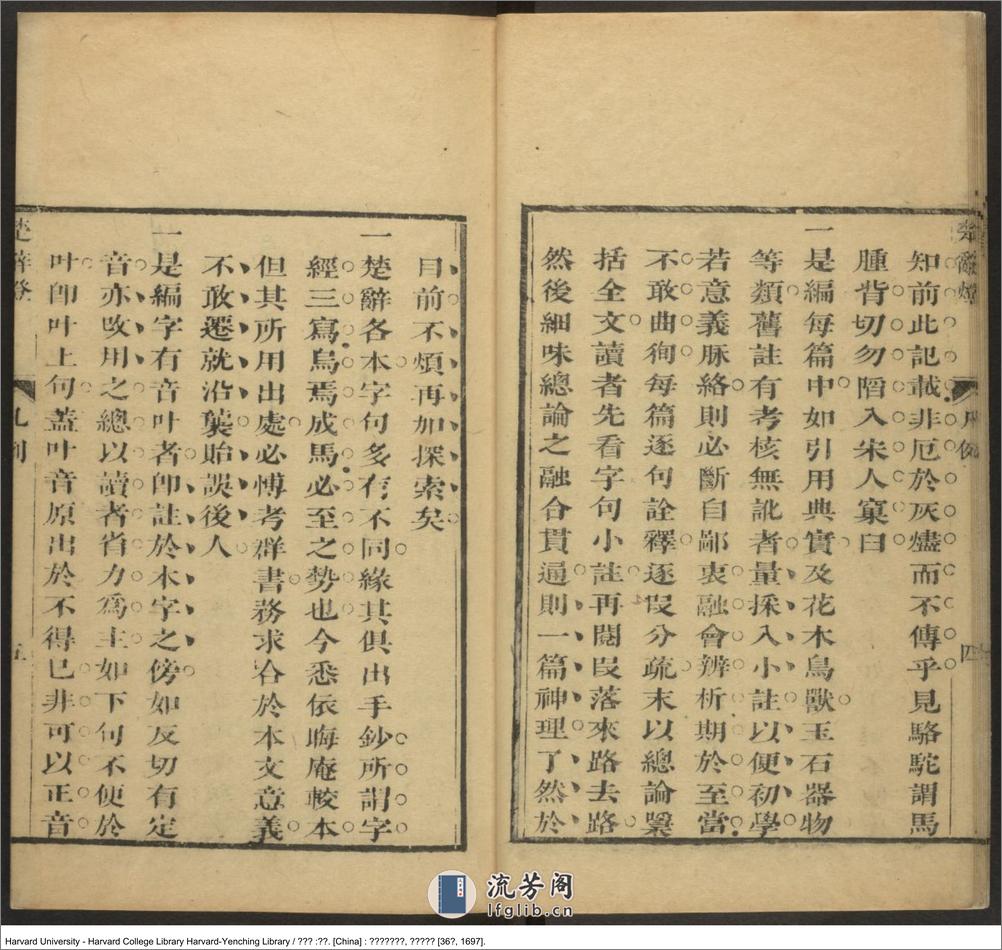 楚辭燈
凡例
四
知前此記載非厄於灰燼而不傳乎見駱駝謂馬
腫背切勿陷入宋人窠臼
一是編每篇中如引用典實及花木鳥獸玉石器物
等類舊註有考核無訛者量採入小註以便初學
若意義脈絡則必斷自鄙衷融會辨析期於至當
不敢曲徇每篇逐句詮釋逐段分疏末以總論檃
括全文讀者先看字句小註再閱段落來路去路
然後細味總論之融合貫通則一篇神理了然於
目前不煩再如探索矣
一楚辭各本字句多有不同緣其俱出手鈔所謂字
經三寫烏焉成馬必至之勢也今悉依晦庵較本
但其所用出處必愽考群書務求合於本文意義
不敢遷就沿襲貽誤後人
一是編字有音叶者卽註於本字之傍如反切有定
音亦攺用之總以讀者省力為主如下句不便於
叶卽叶上句蓋叶音原出於不得已非可以正音
楚辭燈
凡例
五
流芳阁
lfglib.cn
Harvard University - Harvard College Library Harvard-Yenching Library / ??? :??. [China] : ???????, ????? [36?, 1697].